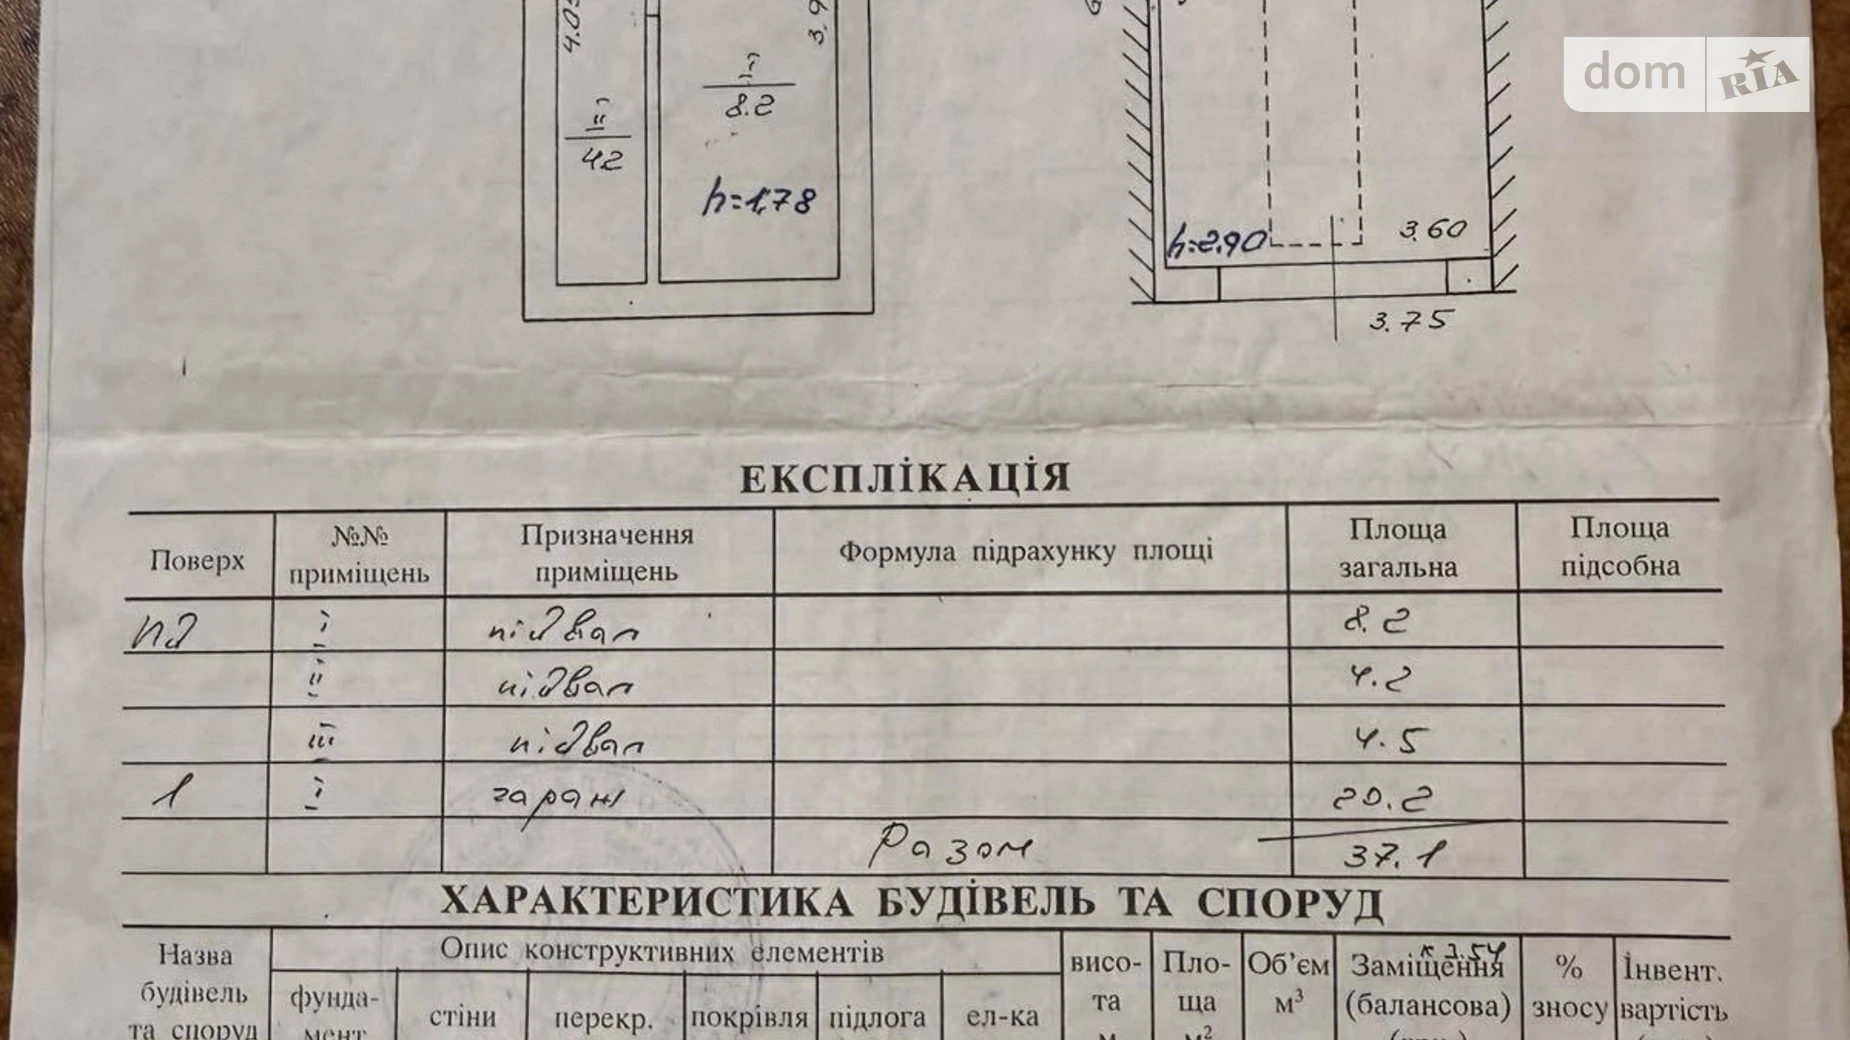 4.0
3.9
dom RIA
I
8.2
II
42
h=1,78
h=2.90
3.60
3.75
ЕКСПЛІКАЦІЯ
Поверх №№ приміщень Призначення приміщень Формула підрахунку площі Площа загальна Площа підсобна
пд I підвал 8.2
II підвал 4.2
III підвал 4.5
1 I гараж 20.2
Разом 37.1
ХАРАКТЕРИСТИКА БУДІВЕЛЬ ТА СПОРУД
Назва будівель та споруд
Опис конструктивних елементів
фунда-мент стіни перекр. покрівля підлога ел-ка
висо-та м
Пло-ща м²
Об’єм м³
к 3.54
Заміщення (балансова)
% зносу
Інвент. вартість